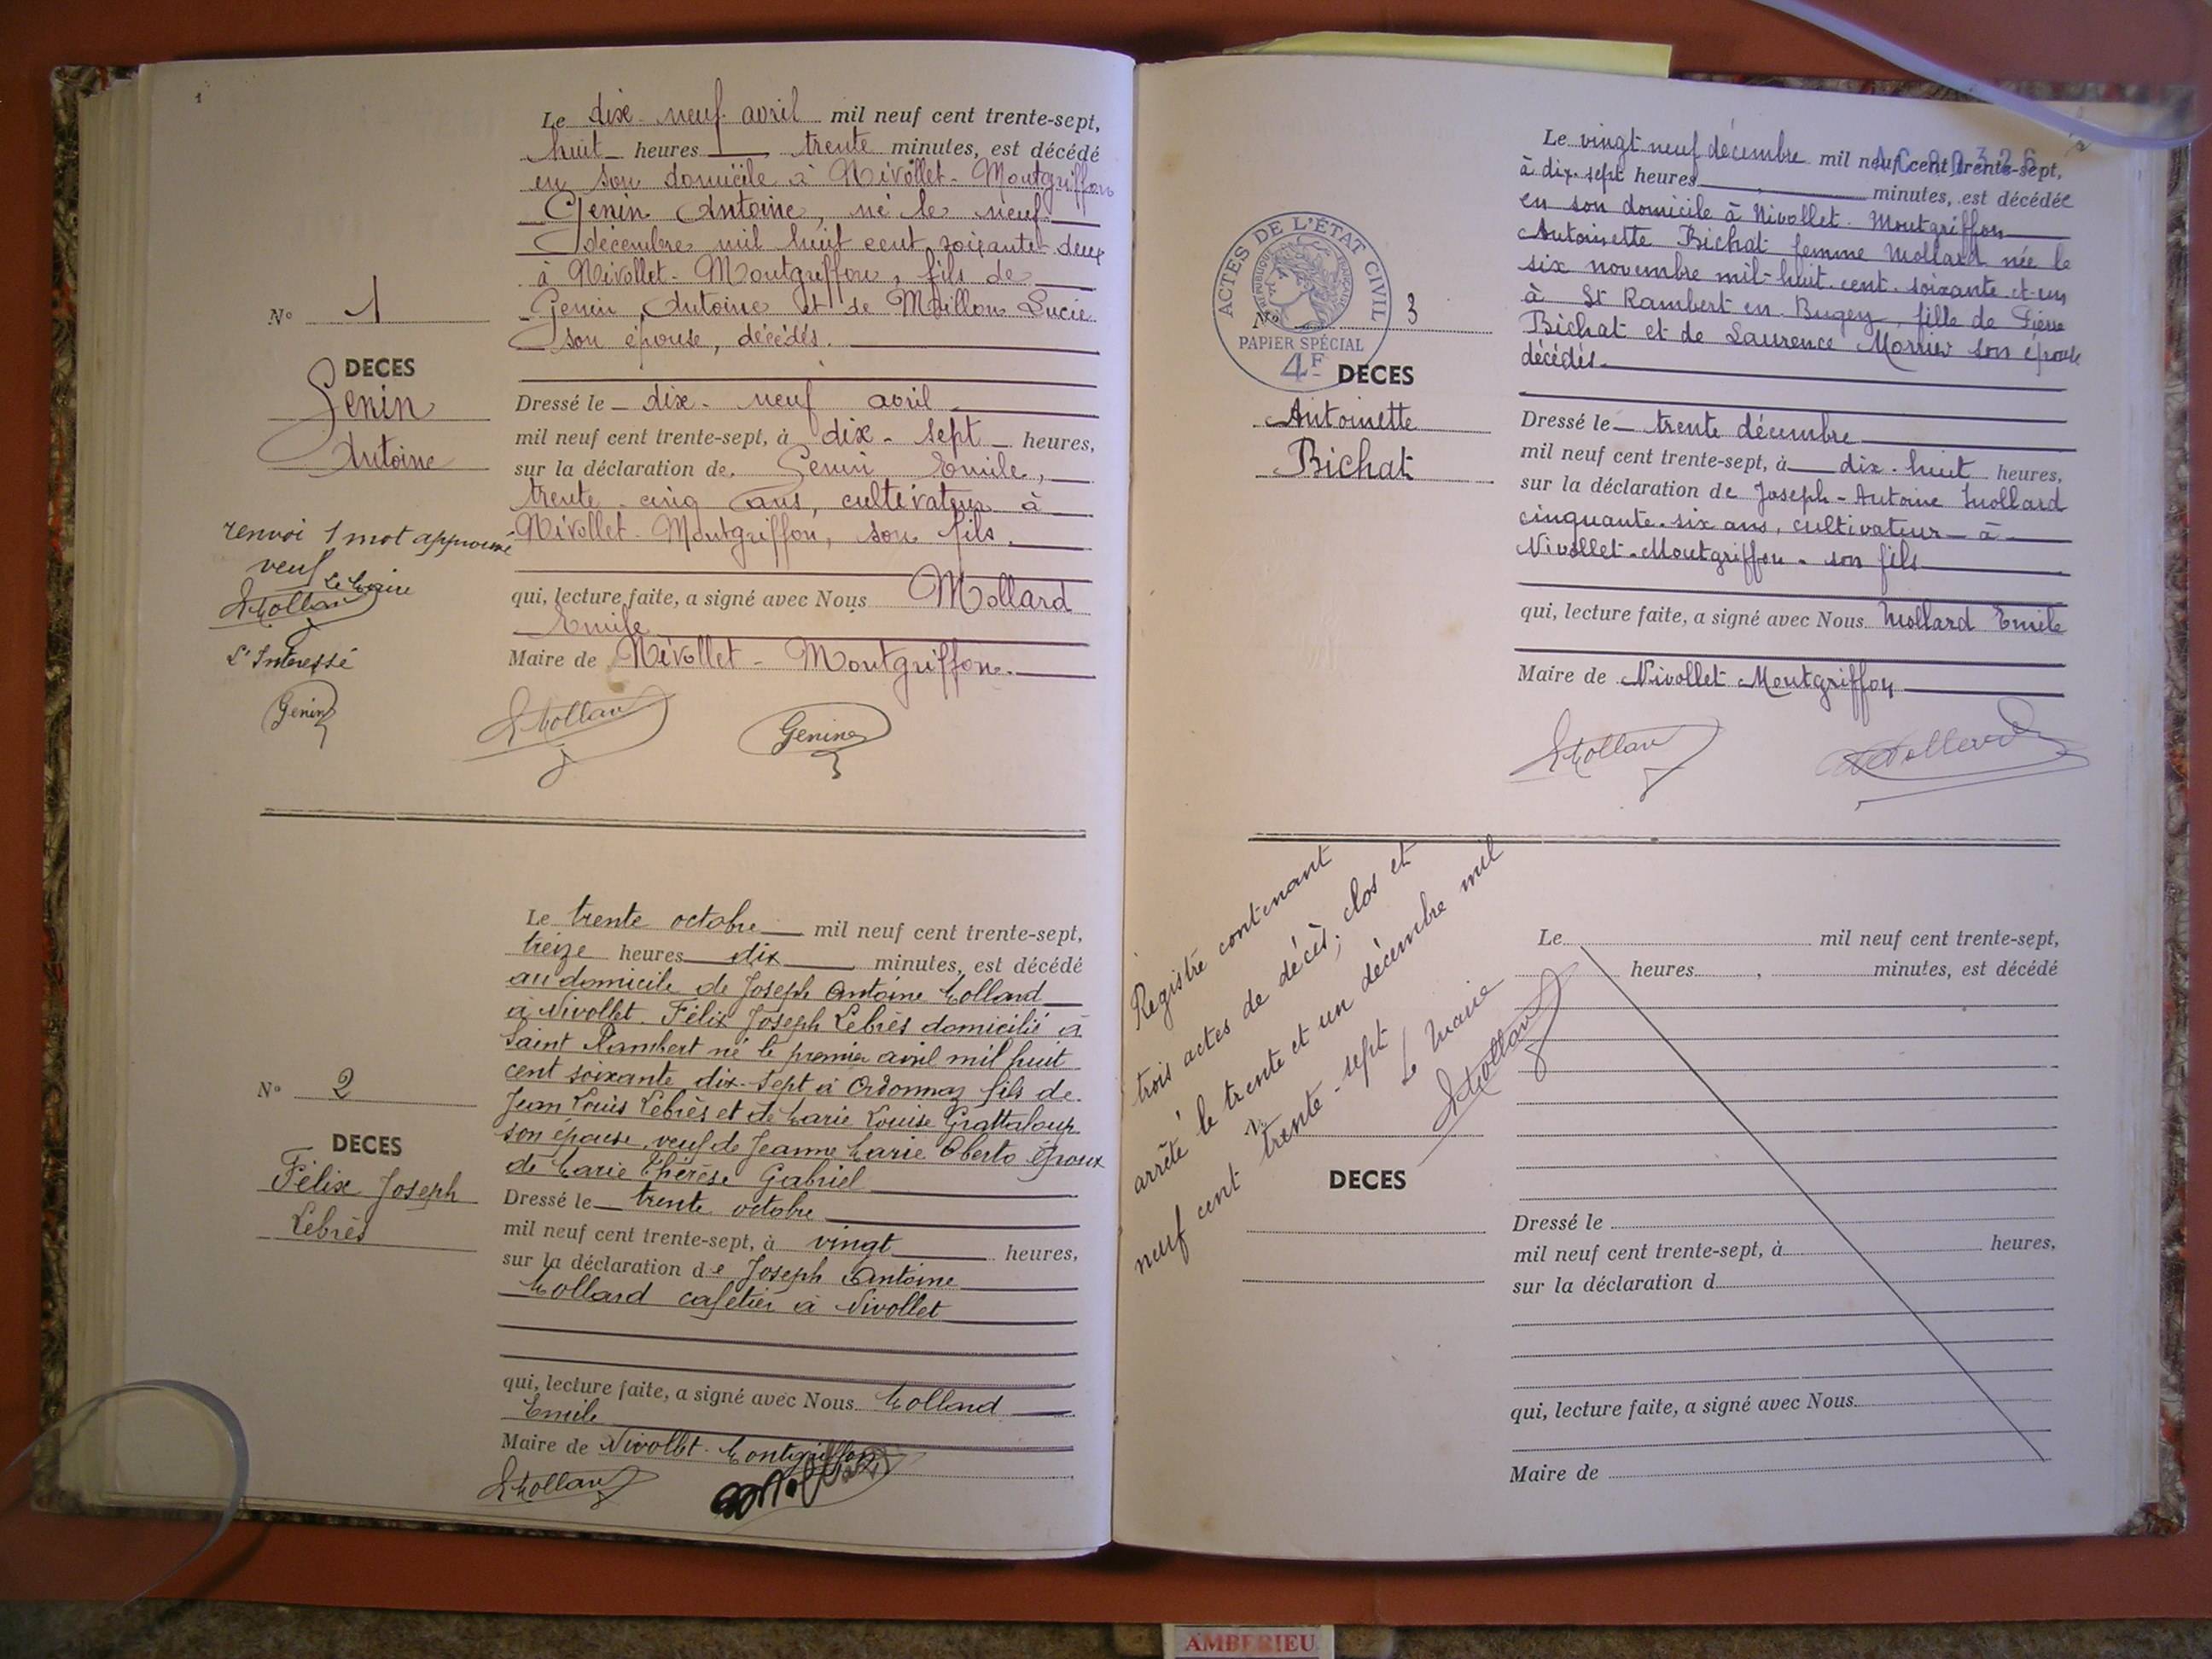 1
Le dix-neuf avril mil neuf cent trente-sept,
huit heures trente minutes, est décédé
en son domicile à Nivollet-Montgriffon
Genin Antoine, né le neuf
décembre mil huit cent soixante-deux
à Nivollet-Montgriffon, fils de
Genin Antoine et de Moillon Lucie
son épouse, décédés.
N° 1
DECES
Genin
Antoine
Dressé le dix-neuf avril
mil neuf cent trente-sept, à dix-sept heures,
sur la déclaration de Genin Emile,
trente-cinq ans, cultivateur à
Nivollet-Montgriffon, son fils.
renvoi 1 mot approuvé
veuf
Le Maire
EMollard
L'Interessé
Genin
qui, lecture faite, a signé avec Nous Mollard
Emile
Maire de Nivollet-Montgriffon.
EMollard
Genin
Le trente octobre mil neuf cent trente-sept,
treize heures dix minutes, est décédé
au domicile de Joseph Antoine Mollard
à Nivollet. Félix Joseph Lebrès domicilié à
Saint Rambert né le premier avril mil huit
cent soixante dix-sept à Ordonnaz fils de
Jean Louis Lebrès et de Marie Louise Grattaloup
son épouse, veuf de Jeanne Marie Oberto époux
de Marie Thérèse Gabriel
N° 2
DECES
Félix Joseph
Lebrès
Dressé le trente octobre
mil neuf cent trente-sept, à vingt heures,
sur la déclaration de Joseph Antoine
Mollard cafetier à Nivollet
qui, lecture faite, a signé avec Nous Mollard
Emile
Maire de Nivollet-Montgriffon
EMollard
Le vingt neuf décembre mil neuf cent trente-sept,
à dix-sept heures minutes, est décédée
en son domicile à Nivollet-Montgriffon
Antoinette Bichat femme Mollard née le
six novembre mil-huit-cent-soixante-et-un
à St Rambert en Bugey, fille de Pierre
Bichat et de Laurence son épouse
décédés.
ACTES DE L'ÉTAT CIVIL
RÉPUBLIQUE FRANÇAISE
PAPIER SPÉCIAL
4F
N° 3
DECES
Antoinette
Bichat
Dressé le trente décembre
mil neuf cent trente-sept, à dix-huit heures,
sur la déclaration de Joseph-Antoine Mollard
cinquante-six ans, cultivateur à
Nivollet-Montgriffon - son fils
qui, lecture faite, a signé avec Nous Mollard Emile
Maire de Nivollet Montgriffon
EMollard
Mollard
Registre contenant
trois actes de décès; clos et
arrêté le trente et un décembre mil
neuf cent trente-sept
Le Maire
EMollard
Le mil neuf cent trente-sept,
heures , minutes, est décédé
N°
DECES
Dressé le
mil neuf cent trente-sept, à heures,
sur la déclaration d
qui, lecture faite, a signé avec Nous
Maire de
AMBERIEU